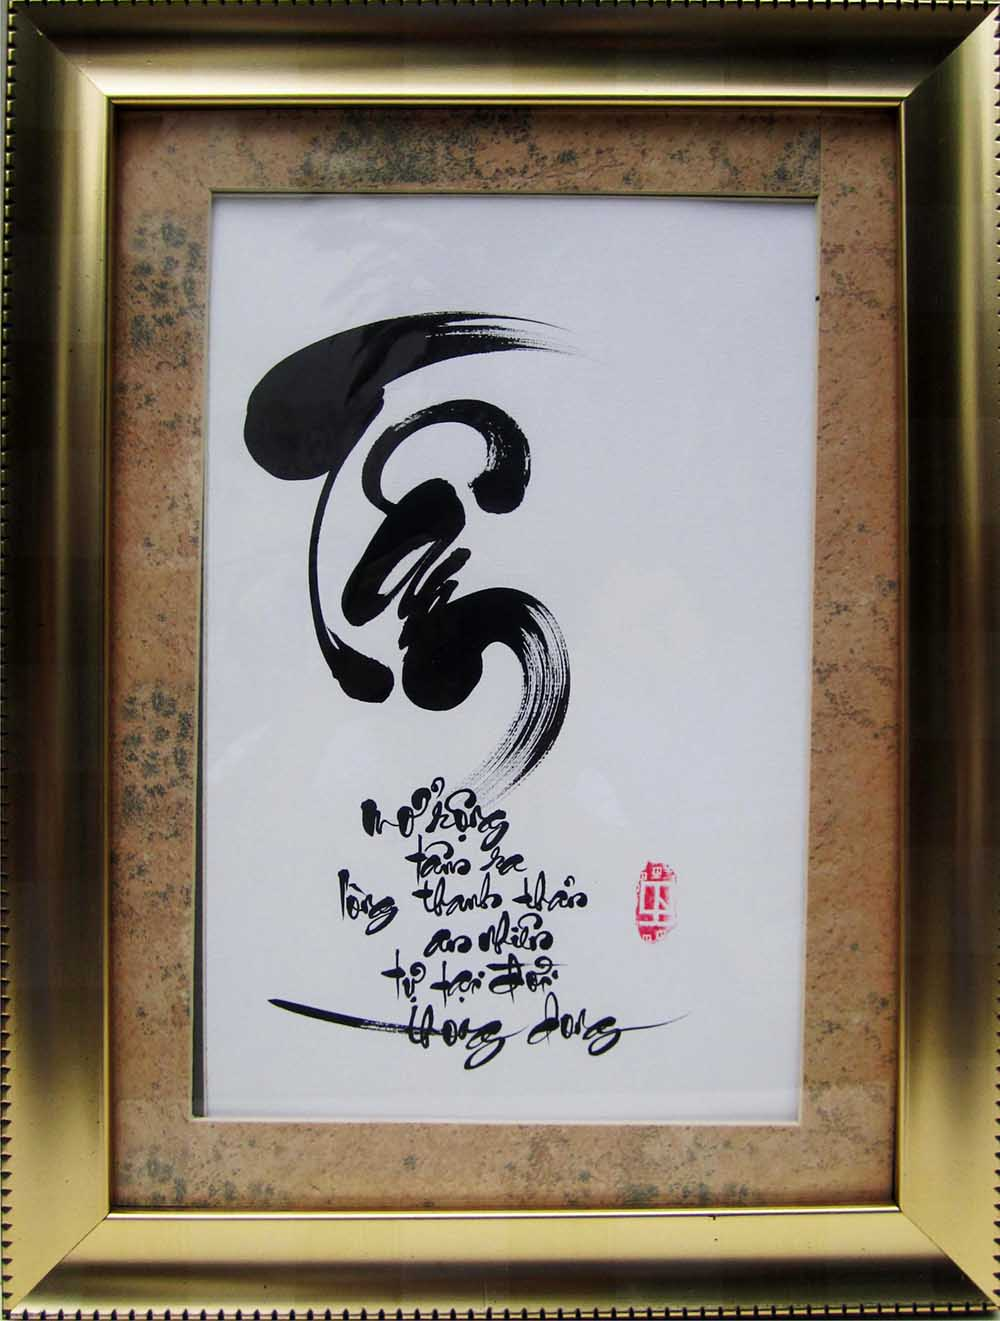 Tâm
mở rộng
tâm ra
lòng thanh thản
an nhiên
tự tại đời
thong dong